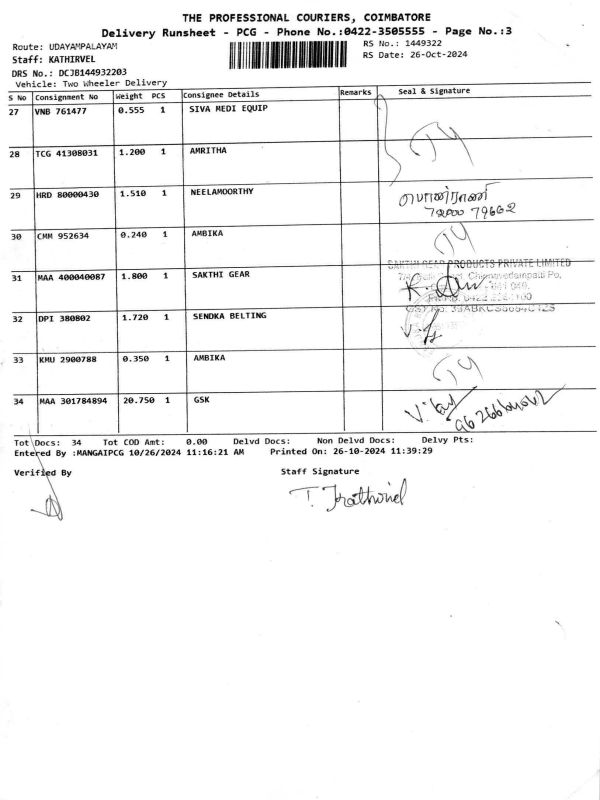 THE PROFESSIONAL COURIERS, COIMBATORE
Delivery Runsheet - PCG - Phone No.:0422-3505555 - Page No.:3
Route: UDAYAMPALAYAM
RS No.: 1449322
Staff: KATHIRVEL
RS Date: 26-Oct-2024
DRS No.: DCJB144932203
Vehicle: Two Wheeler Delivery
S No Consignment No Weight PCS Consignee Details Remarks Seal & Signature
27 VNB 761477 0.555 1 SIVA MEDI EQUIP
28 TCG 41308031 1.200 1 AMRITHA
29 HRD 80000430 1.510 1 NEELAMOORTHY
30 CMM 952634 0.240 1 AMBIKA
SAKTHI GEAR PRODUCTS PRIVATE LIMITED
31 MAA 400040087 1.800 1 SAKTHI GEAR
32 DPI 380802 1.720 1 SENDKA BELTING
33 KMU 2900788 0.350 1 AMBIKA
34 MAA 301784894 20.750 1 GSK
Tot Docs: 34 Tot COD Amt: 0.00 Delvd Docs: Non Delvd Docs: Delvy Pts:
Entered By :MANGAIPCG 10/26/2024 11:16:21 AM Printed On: 26-10-2024 11:39:29
Verified By Staff Signature